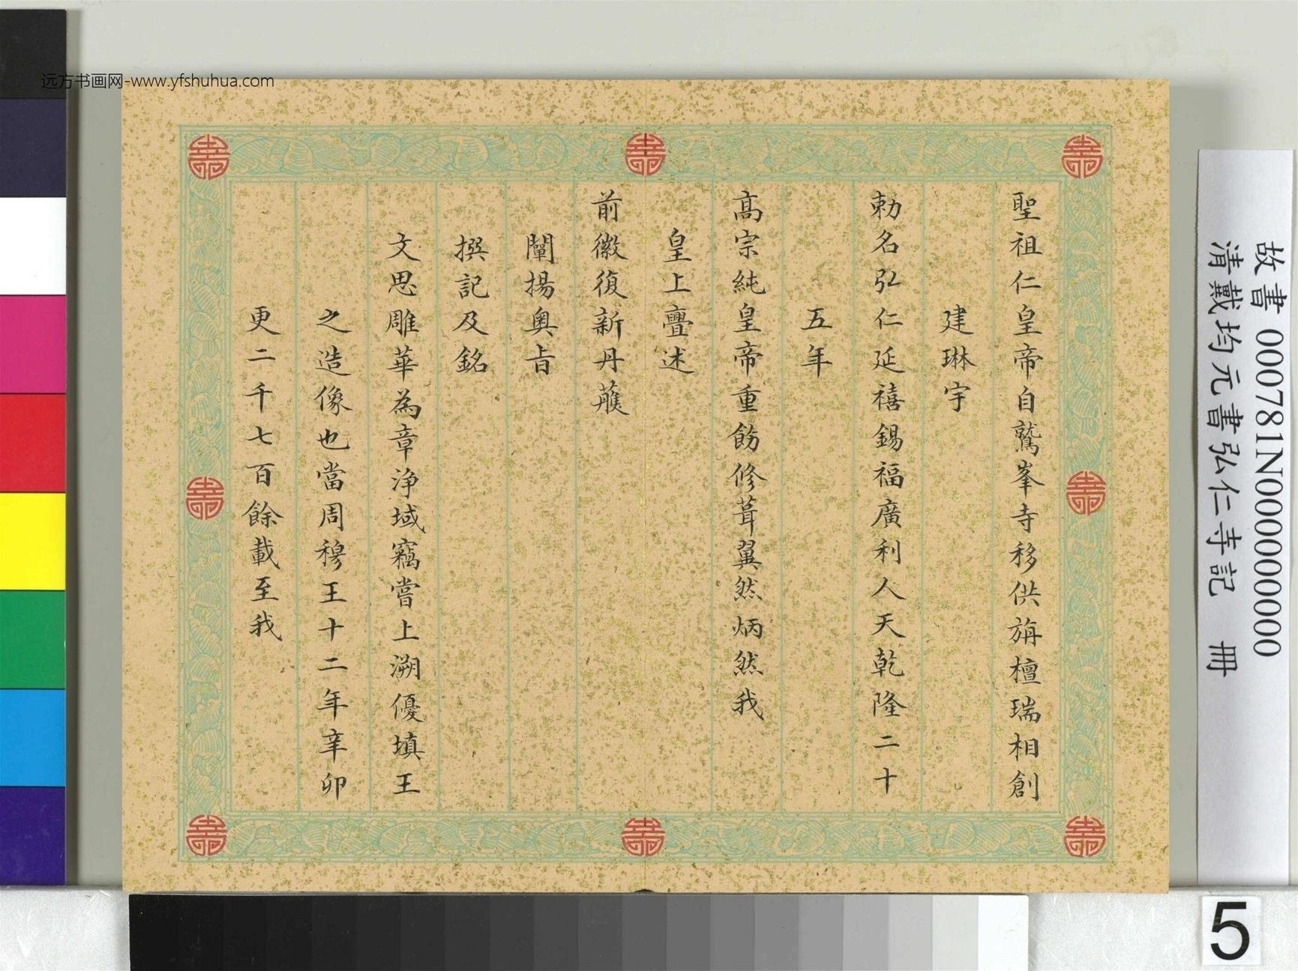 聖祖仁皇帝自鷲峯寺移供旃檀瑞相創
建琳宇
勅名弘仁延禧錫福廣利人天乾隆二十
五年
高宗純皇帝重飭修葺翼然炳然我
皇上亹述
前徽復新丹雘
闡揚奥旨
撰記及銘
文思雕華為章浄域竊嘗上溯優填王
之造像也當周穆王十二年辛卯
更二千七百餘載至我
故書 000781N000000000
清戴均元書弘仁寺記 冊
5
远方书画网-www.yfshuhua.com